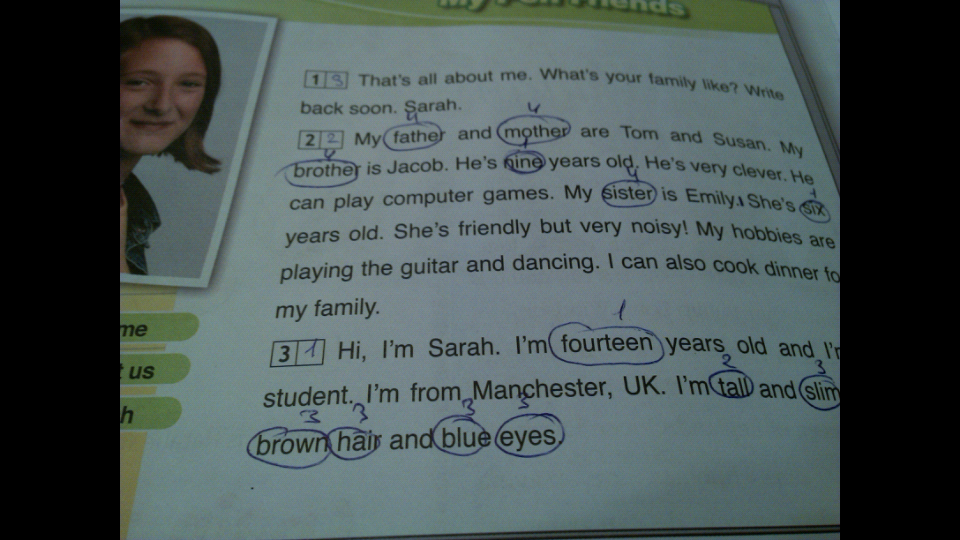 My Pen Friends
1 3 That's all about me. What's your family like? Write
back soon. Sarah.
2 2 My father and mother are Tom and Susan. My
brother is Jacob. He's nine years old. He's very clever. He
can play computer games. My sister is Emily. She's six
years old. She's friendly but very noisy! My hobbies are
playing the guitar and dancing. I can also cook dinner fo
my family.
3 1 Hi, I'm Sarah. I'm fourteen years old and I'm
student. I'm from Manchester, UK. I'm tall and slim
brown hair and blue eyes.
me
us
h
4 4
4 1
4
1
1
2 3
3 3 3 3